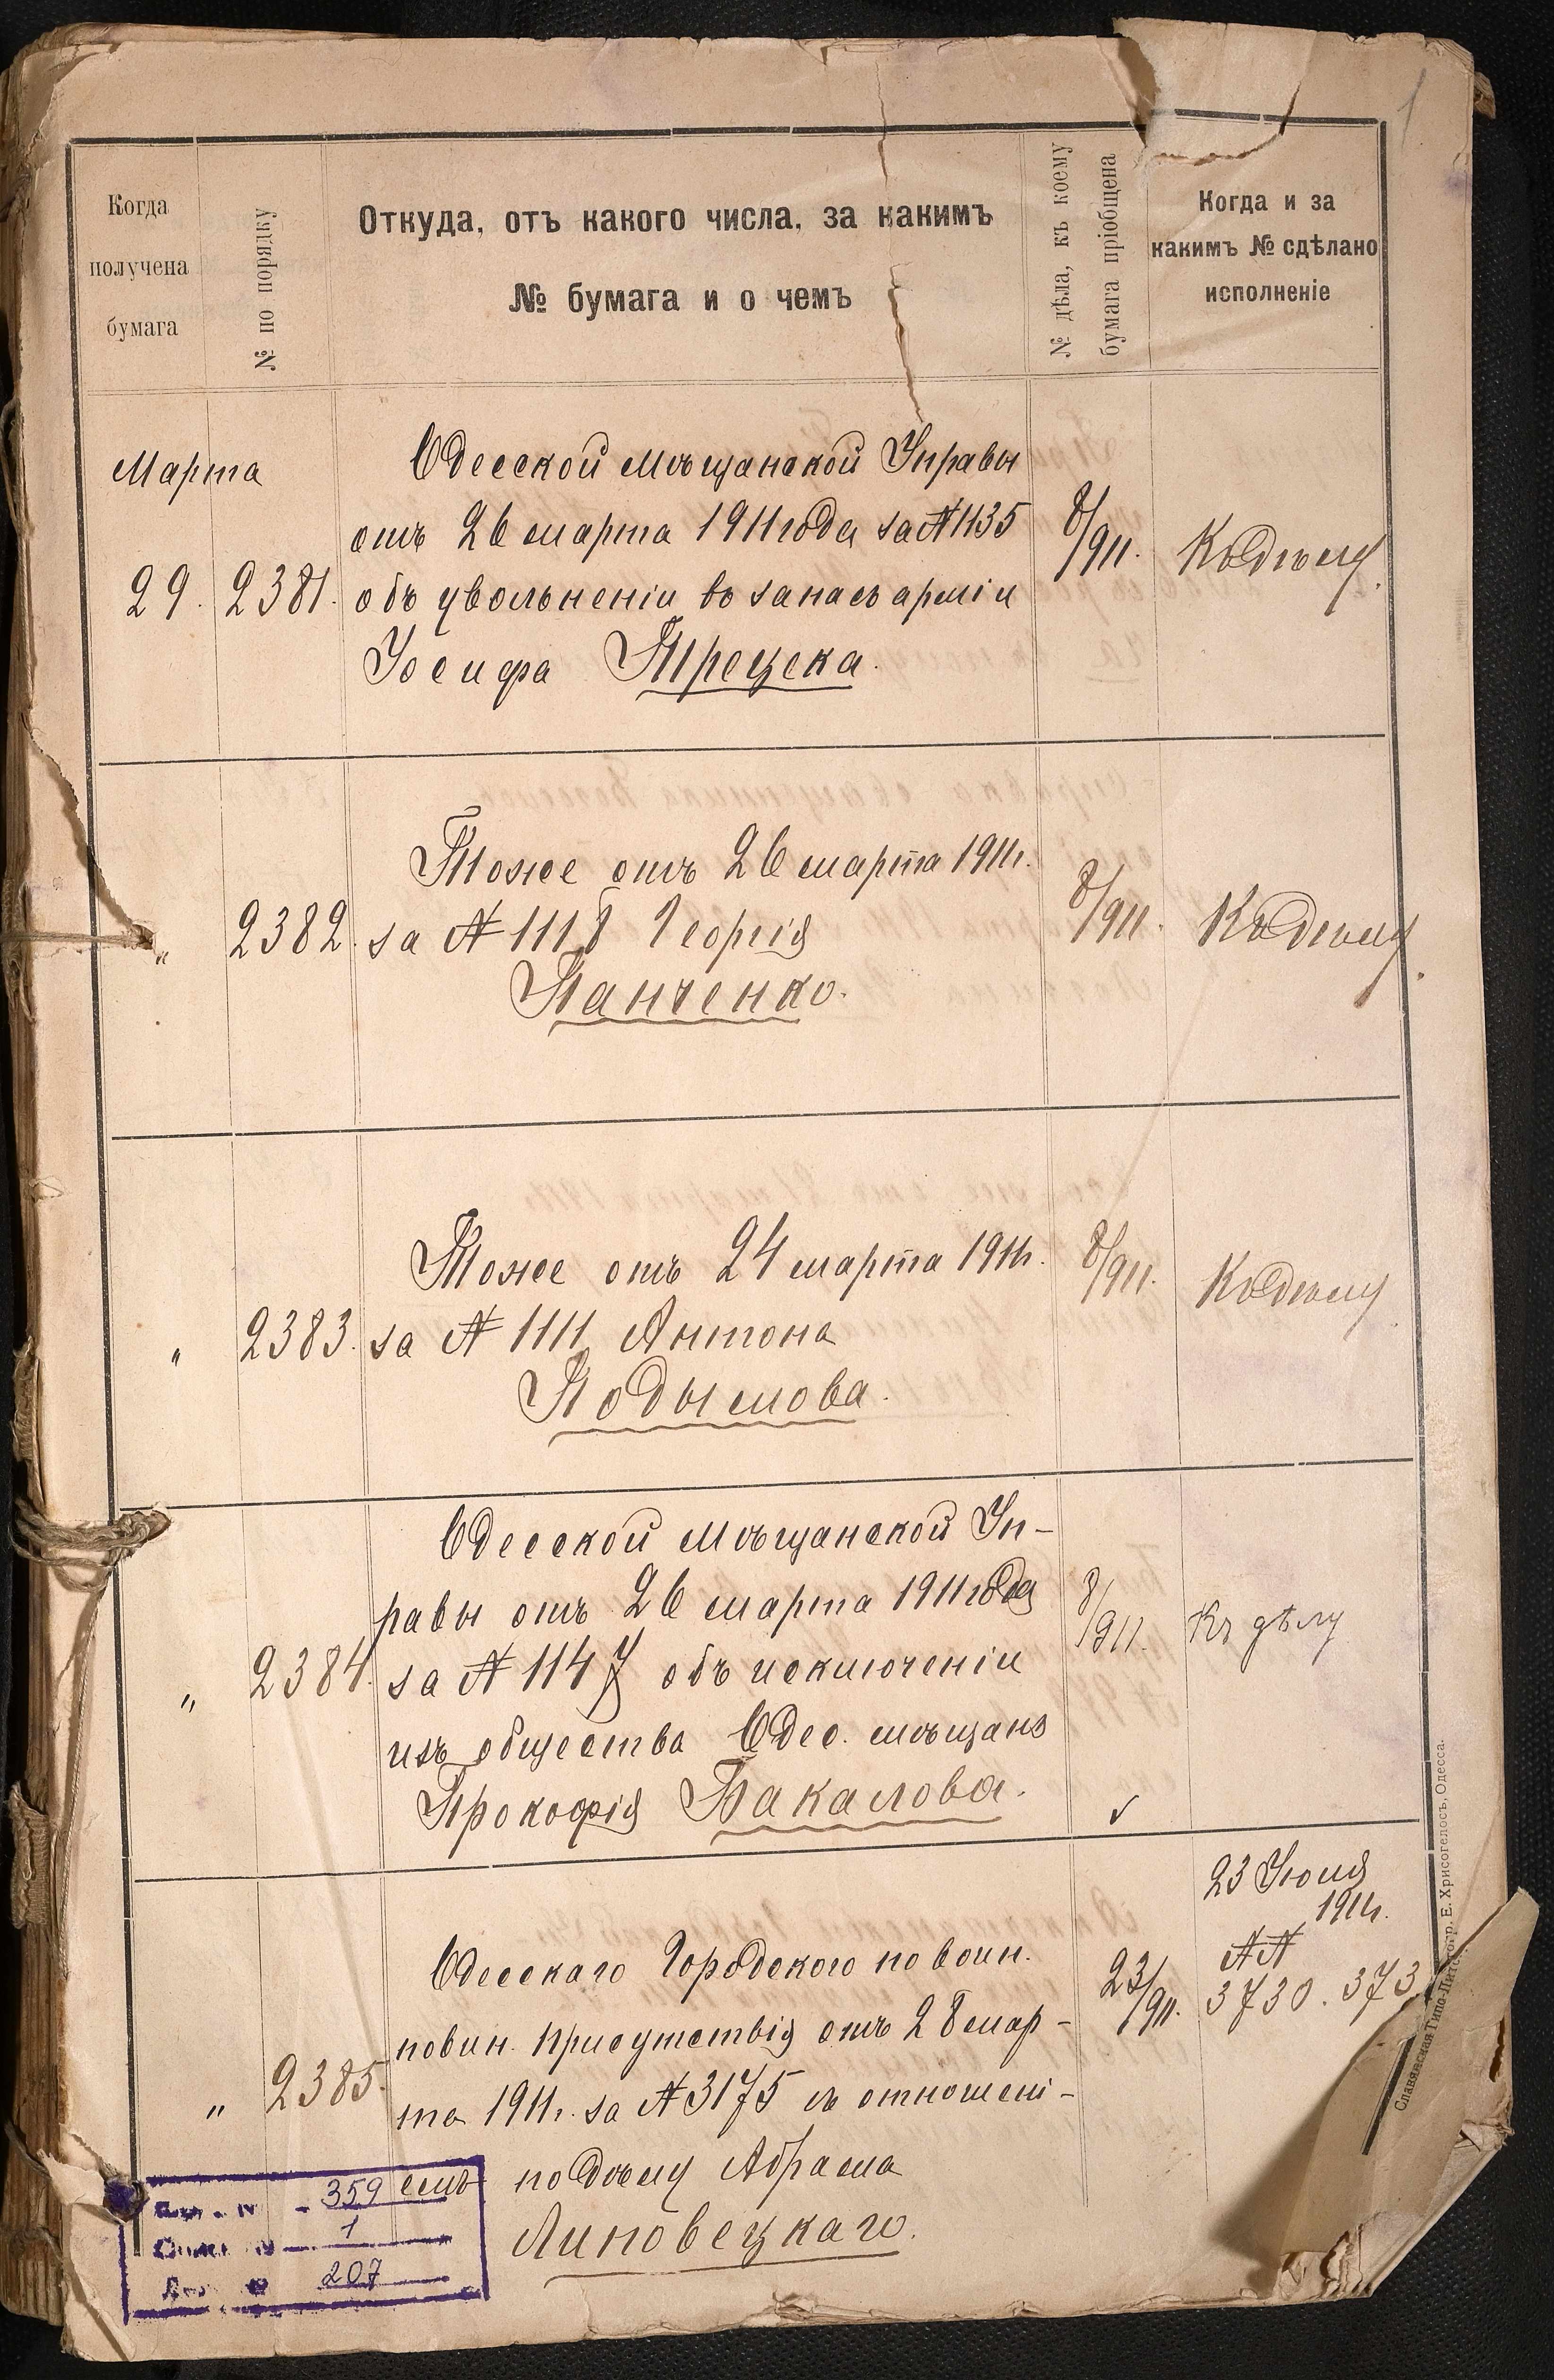 1
Когда
получена
бумага
№ по порядку
Откуда, отъ какого числа, за какимъ
№ бумага и о чемъ
№ дѣла, къ коему
бумага пріобщена
Когда и за
какимъ № сдѣлано
исполненіе
Марта
29. 2381.
Одесской Мѣщанской Управы
отъ 26 марта 1911 года за № 1135
объ увольненіи въ запасъ арміи
Іосифа Трецека.
8/911.
Къ дѣлу.
" 2382.
Тоже отъ 26 марта 1911 г.
за № 1118 Георгія
Панченко.
8/911.
Къ дѣлу.
" 2383.
Тоже отъ 24 марта 1911 г.
за № 1111 Антона
Подымова.
8/911.
Къ дѣлу
" 2384.
Одесской Мѣщанской Уп-
равы отъ 26 марта 1911 года
за № 1147 объ исключеніи
изъ общества Одес. мѣщанъ
Прокофія Бакалова.
8/911.
Къ дѣлу
" 2385.
Одесскаго Городского по воин.
повин. присутствія отъ 28 мар-
та 1911 г. за № 3175 съ отношені-
емъ по дѣлу Абрама
Липовецкаго.
23/911.
23 Іюня
1911 г.
№№
3730. 373
359
1
207
Славянская Типо-Литогр. Е. Хрисогелосъ, Одесса.